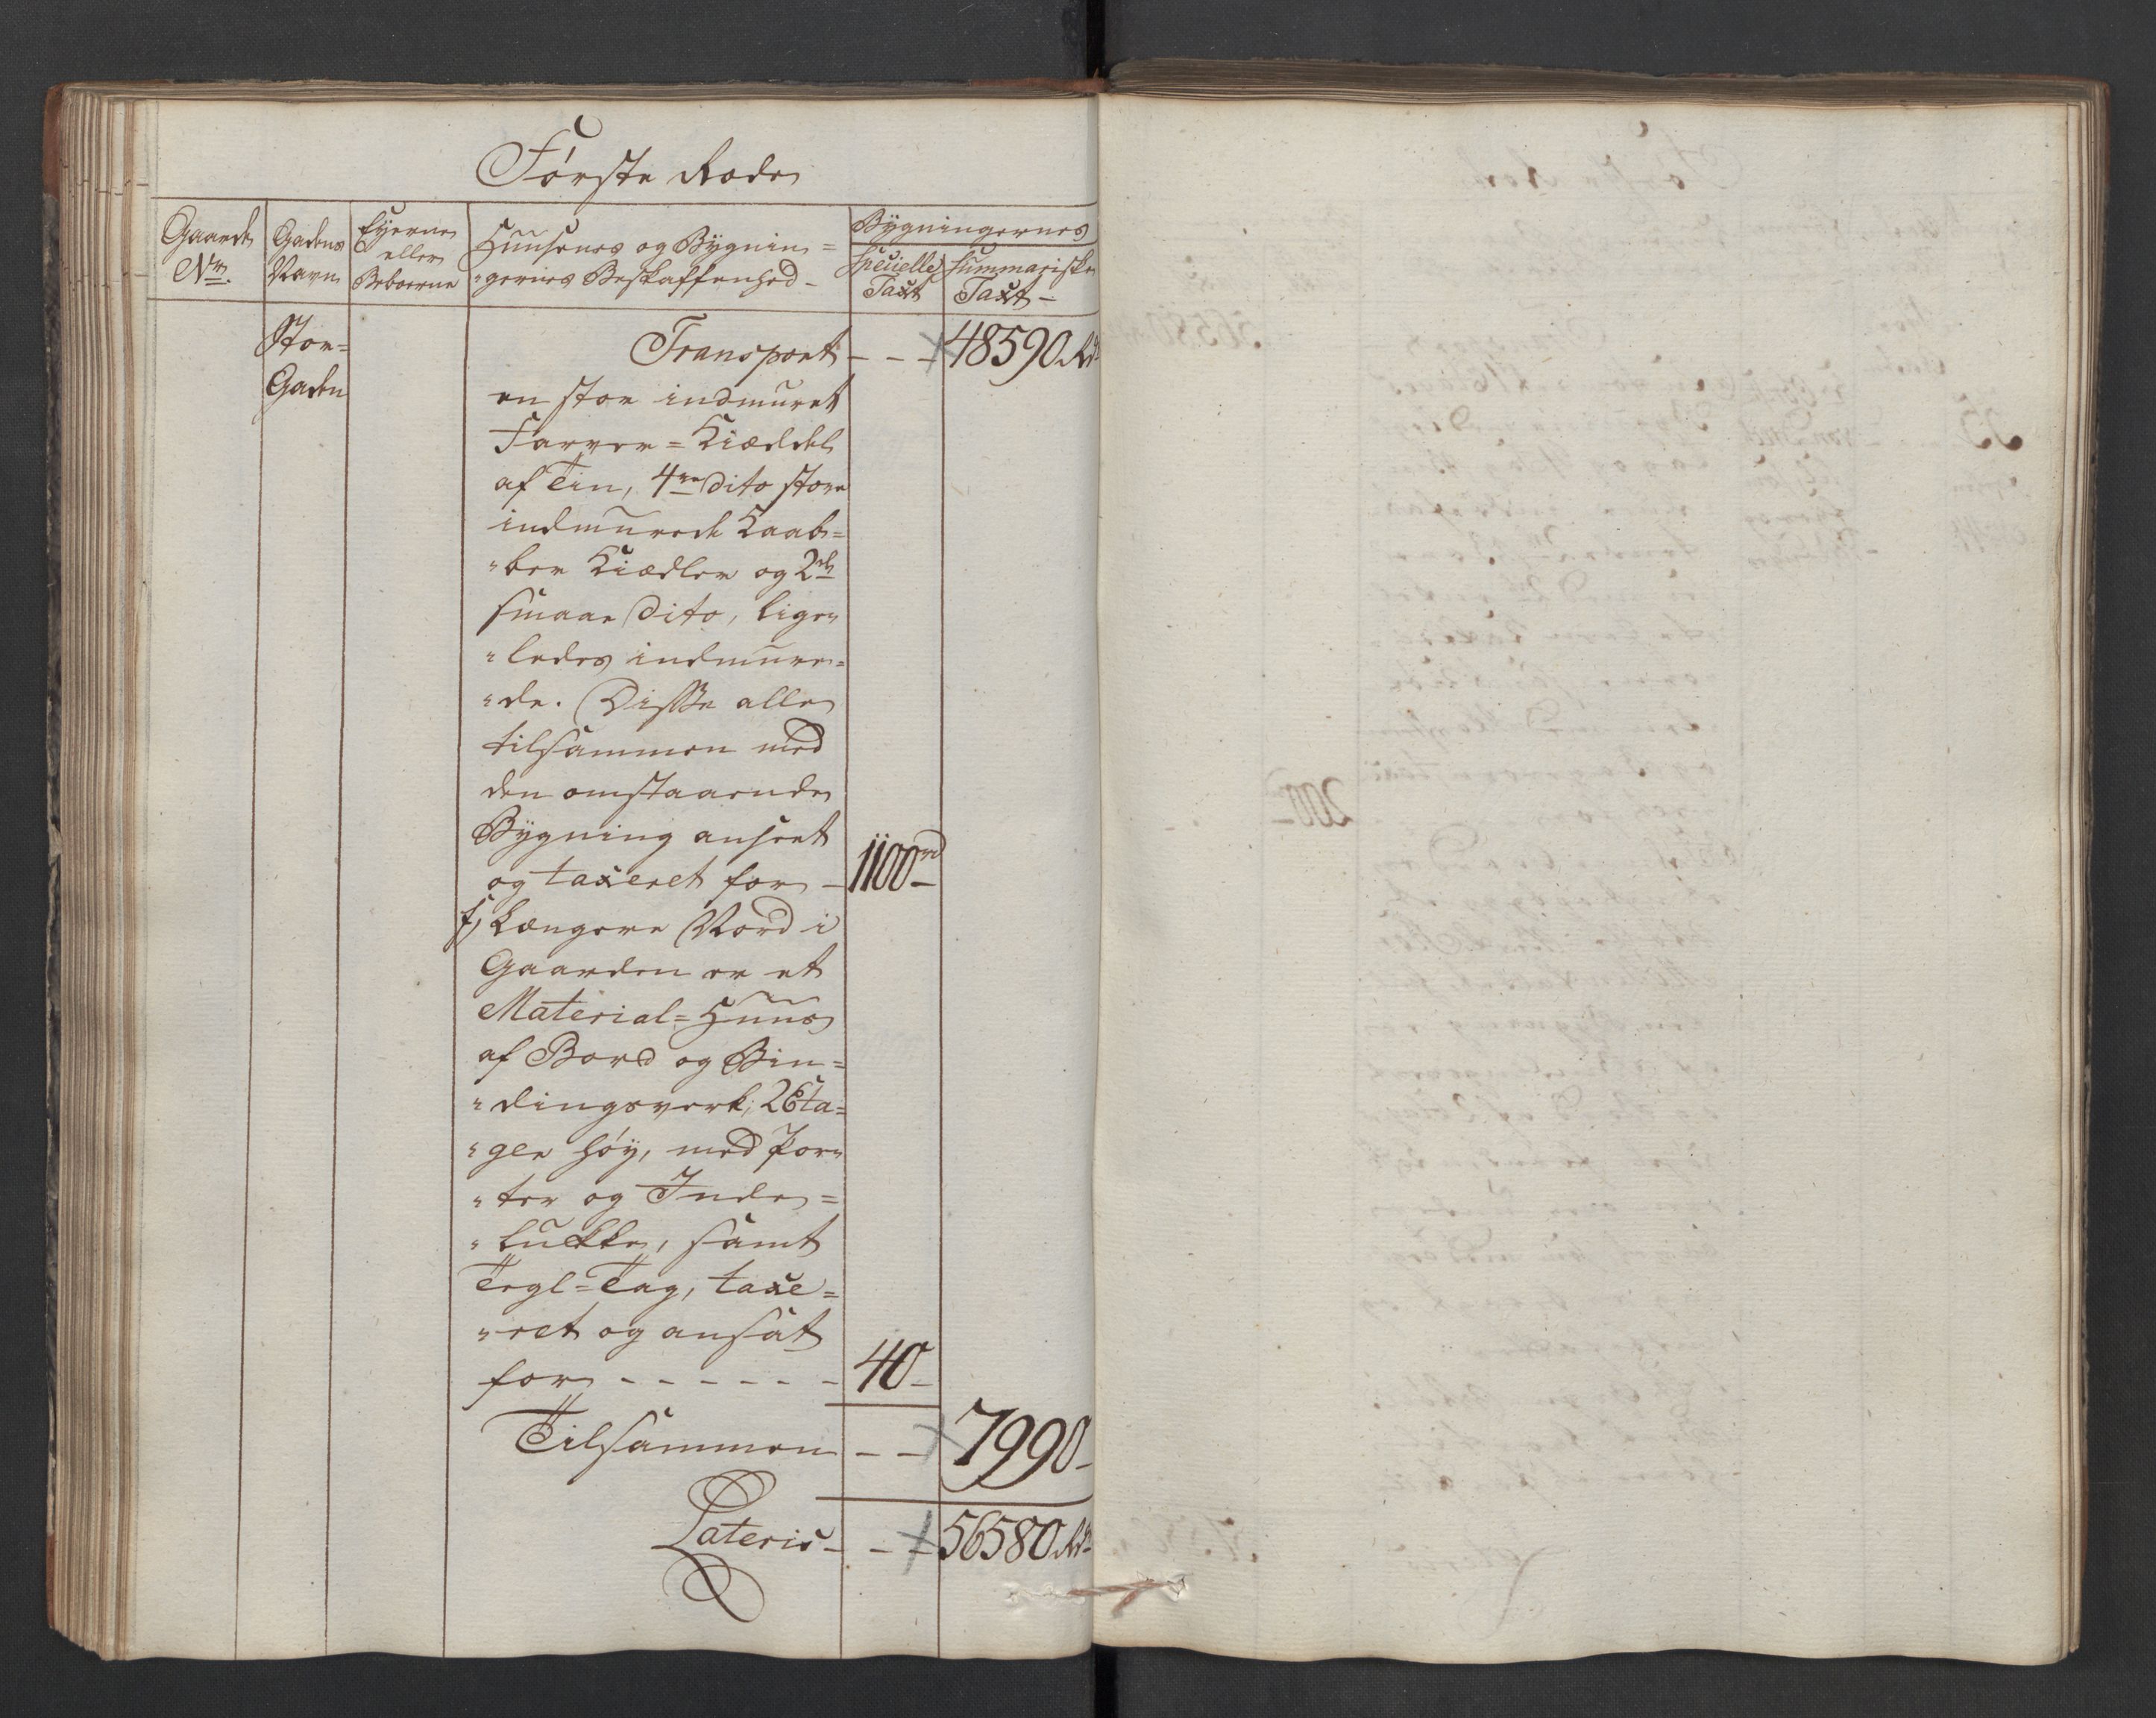 Første Rode
Gaards
No.
Gadens
Navn
Eyerne
eller
Beboerne
Huusenes og Bygnin=
"gernes Beskaffenhed -
Bygningernes
Specielle
Taxt
Summariske
Taxt -
Stor=
Gaden
Transport - - - 48590 Rd
en stor indmuret
Farver=Kiæddel
af Tin, 4re Dito store
indmurede Kaab=
"ber Kiædler og 2de
smaae Dito, lige=
"ledes indmure=
"de. Disse alle
tilsammen med
den omstaaende
Bygning anseet
og taxeret for - 1100rd -
f, Længere Nord i
Gaarden er et
Material=Huus
af Bord og Bin=
"dingsverk, 2 Eta=
"ger høy, med Por=
"ter og Inde=
"lukke, samt
Tegl=Tag, taxe=
"ret og ansat
for - - - - - - 40 -
Tilsammen - - 7990 -
Lateris - - - 56580 Rd -